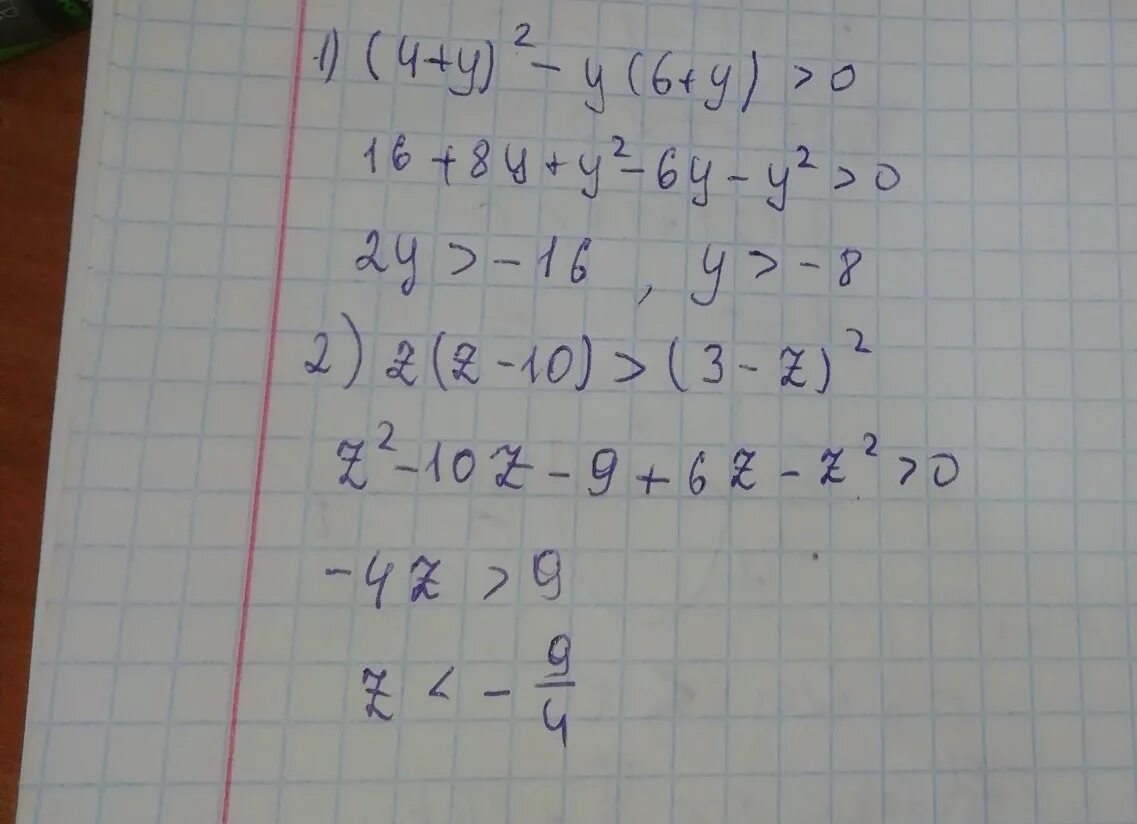 1) (4+y)² - y(6+y) > 0
16 + 8y + y² - 6y - y² > 0
2y > -16 , y > -8
2) z(z - 10) > (3 - z)²
z² - 10z - 9 + 6z - z² > 0
-4z > 9
z < - 9/4